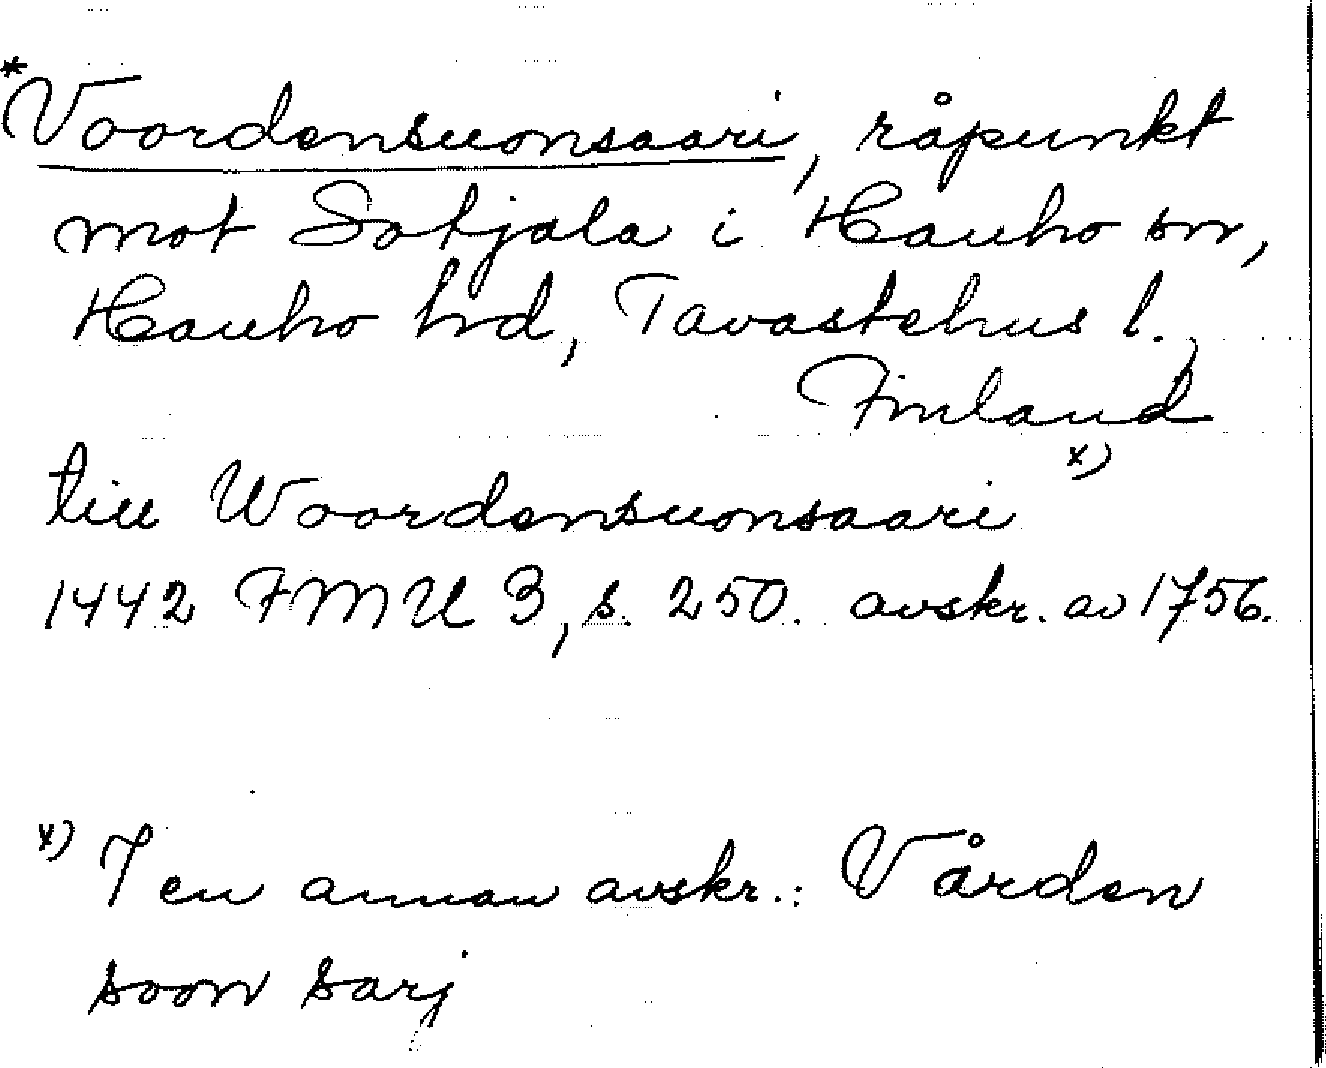 *Voordensuonsaari, råpunkt
mot Sotjala i Hauho sn,
Hauho hrd, Tavastehus l.,
Finland
till Woordensuonsaari x)
1442 FMU 3, s. 250. avskr. av 1756.
x) I en annan avskr.: Vården
soon sarj